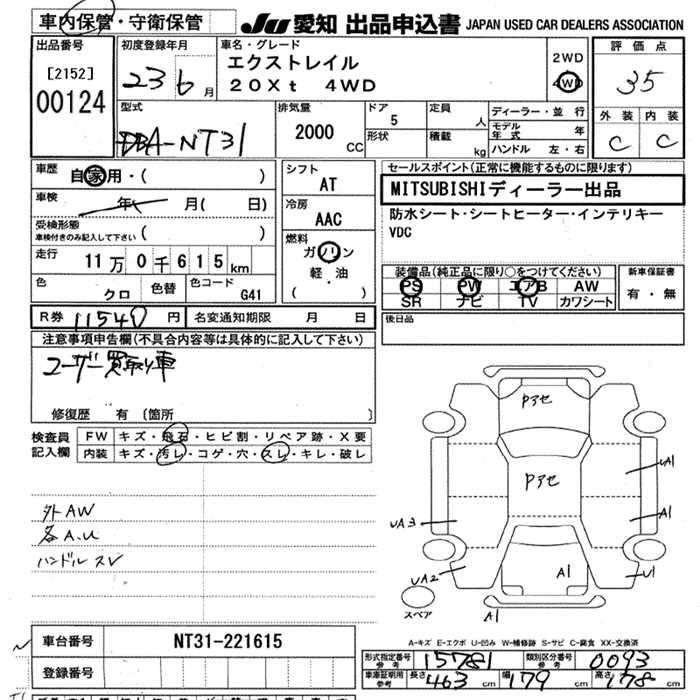 車内保管・守衛保管
JU 愛知 出品申込書 JAPAN USED CAR DEALERS ASSOCIATION
出品番号
[2152]
00124
初度登録年月
23 6 月
車名・グレード
エクストレイル
20Xt 4WD
2WD
4WD
評価点
35
外装 内装
C C
型式
DBA-NT31
排気量
2000 CC
ドア
5
形状
定員
人
積載
kg
ディーラー・並行
モデル年式 年
ハンドル 左・右
車歴
自家用・( )
車検
年( 月( 日)
受検形態
車検付きのみ記入して下さい ( )
走行
11万0千615km
色
クロ
色替
色コード
G41
シフト
AT
冷房
AAC
燃料
ガソリン
軽・油
( )
セールスポイント(正常に機能するものに限ります)
MITSUBISHIディーラー出品
防水シート・シートヒーター・インテリキー
VDC
装備品(純正品に限り○をつけてください)
PS PW エアB AW
SR ナビ TV カワシート
新車保証書
有・無
R券 11540 円
名変通知期限 月 日
後日品
注意事項申告欄(不具合内容等は具体的に記入して下さい)
ユーザー買取り車
修復歴 有 〔箇所 〕
検査員
記入欄
FW キズ・飛石・ヒビ割・リペア跡・X要
内装 キズ・汚レ・コゲ・穴・スレ・キレ・破レ
外AW
各A.U
ハンドルスレ
Pアセ
Pアセ
UA1
A1
UA3
UA2
A1
U1
A1
スペア
A-キズ E-エクボ U-凹み W-補修跡 S-サビ C-腐食 XX-交換済
車台番号
NT31-221615
登録番号
形式指定番号
参考
15781
類別区分番号
参考
0093
車庫証明用
参考
長さ 463 cm 幅 179 cm 高さ 178 cm